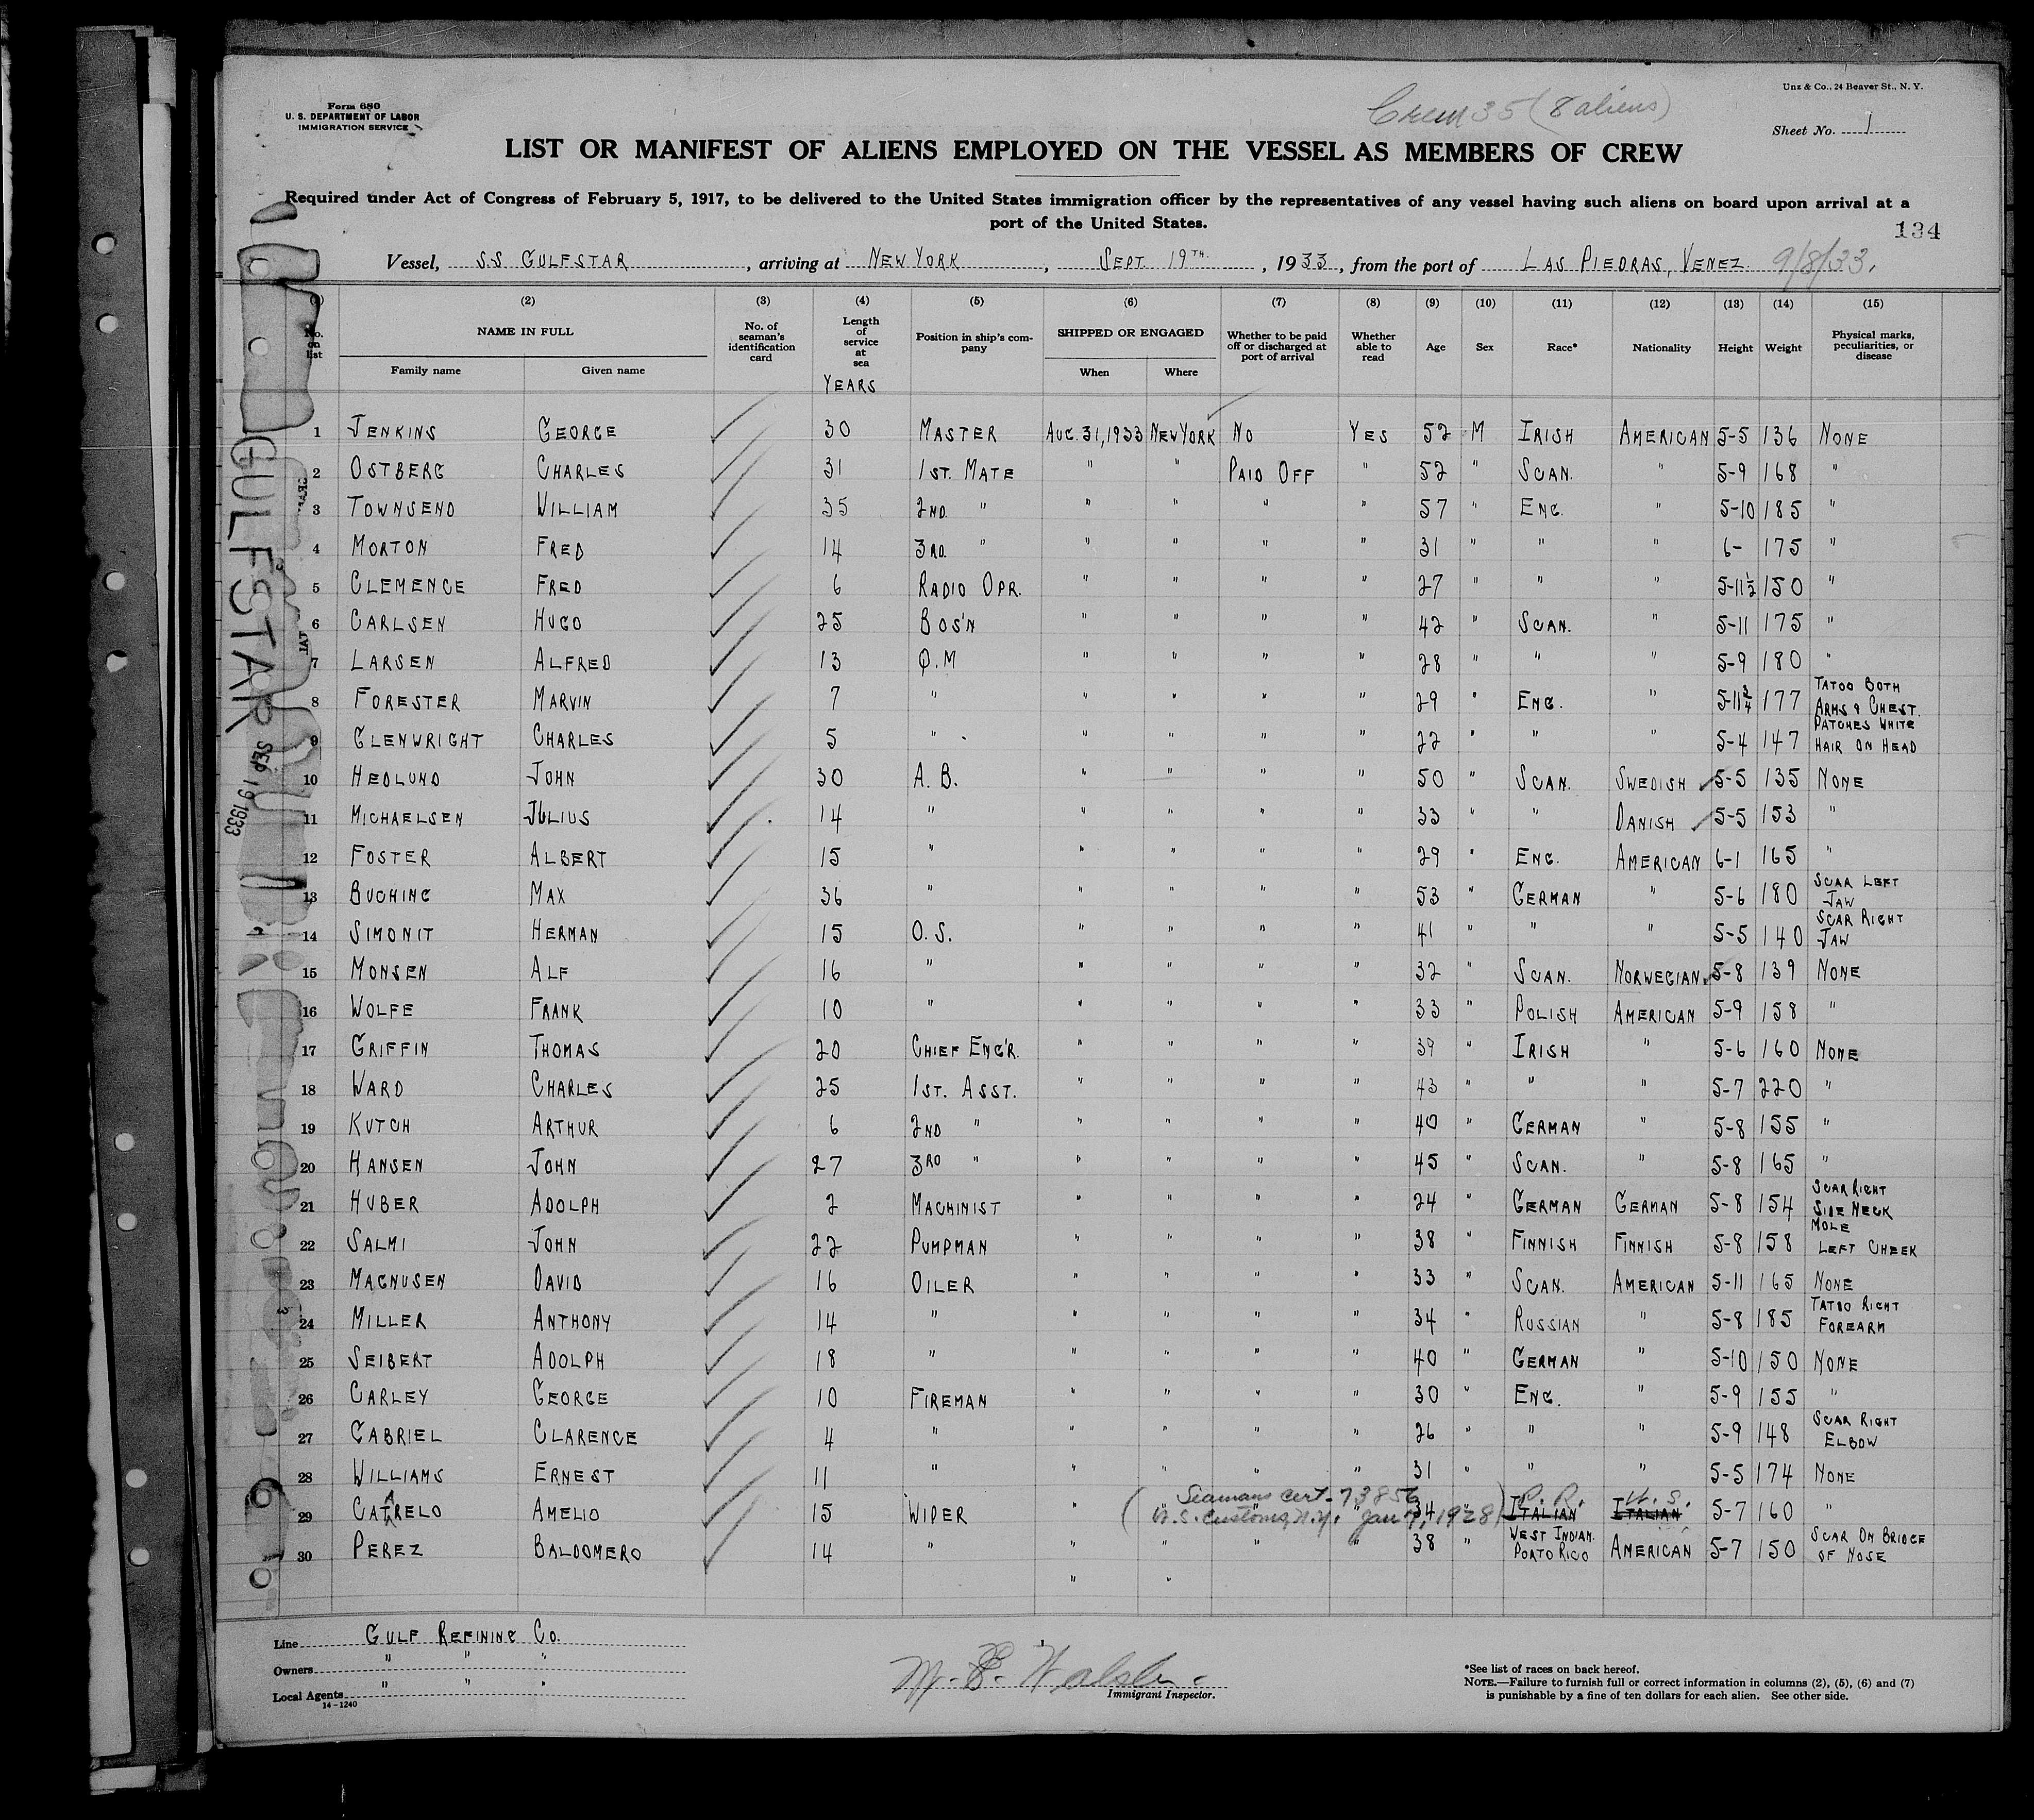 Form 680
U. S. DEPARTMENT OF LABOR
IMMIGRATION SERVICE
Crew 35 (8 aliens)
Unz & Co., 24 Beaver St., N. Y.
Sheet No. 1
LIST OR MANIFEST OF ALIENS EMPLOYED ON THE VESSEL AS MEMBERS OF CREW
Required under Act of Congress of February 5, 1917, to be delivered to the United States immigration officer by the representatives of any vessel having such aliens on board upon arrival at a
port of the United States.
134
Vessel, SS GULFSTAR, arriving at NEW YORK, SEPT. 19TH., 1933, from the port of LAS PIEDRAS, VENEZ. 9/8/33.
(1) (2) (3) (4) (5) (6) (7) (8) (9) (10) (11) (12) (13) (14) (15)
No. on list NAME IN FULL Family name Given name No. of seaman's identification card Length of service at sea YEARS Position in ship's company SHIPPED OR ENGAGED When Where Whether to be paid off or discharged at port of arrival Whether able to read Age Sex Race* Nationality Height Weight Physical marks, peculiarities, or disease
1 JENKINS GEORGE 30 MASTER AUG. 31, 1933 NEW YORK NO YES 52 M IRISH AMERICAN 5-5 136 NONE
2 OSTBERG CHARLES 31 1ST. MATE " " PAID OFF " 52 " SCAN. " 5-9 168 "
3 TOWNSEND WILLIAM 35 2ND. " " " " " 57 " ENG. " 5-10 185 "
4 MORTON FRED 14 3RD. " " " " " 31 " " " 6- 175 "
5 CLEMENCE FRED 6 RADIO OPR. " " " " 27 " " " 5-11½ 150 "
6 CARLSEN HUGO 25 BOS'N " " " " 42 " SCAN. " 5-11 175 "
7 LARSEN ALFRED 13 Q.M " " " " 28 " " " 5-9 180 "
8 FORESTER MARVIN 7 " " " " " 29 " ENG. " 5-11¾ 177 TATOO BOTH ARMS & CHEST.
9 GLENWRIGHT CHARLES 5 " " " " " 22 " " " 5-4 147 PATCHES WHITE HAIR ON HEAD
10 HEDLUND JOHN 30 A. B. " " " " 50 " SCAN. SWEDISH 5-5 135 NONE
11 MICHAELSEN JULIUS 14 " " " " " 33 " " DANISH 5-5 153 "
12 FOSTER ALBERT 15 " " " " " 29 " ENG. AMERICAN 6-1 165 "
13 BUCHING MAX 36 " " " " " 53 " GERMAN " 5-6 180 SCAR LEFT JAW
14 SIMONIT HERMAN 15 O. S. " " " " 41 " " " 5-5 140 SCAR RIGHT JAW
15 MONSEN ALF 16 " " " " " 32 " SCAN. NORWEGIAN 5-8 139 NONE
16 WOLFE FRANK 10 " " " " " 33 " POLISH AMERICAN 5-9 158 "
17 GRIFFIN THOMAS 20 CHIEF ENG'R. " " " " 39 " IRISH " 5-6 160 NONE
18 WARD CHARLES 25 1ST. ASST. " " " " 43 " " " 5-7 220 "
19 KUTCH ARTHUR 6 2ND " " " " " 40 " GERMAN " 5-8 155 "
20 HANSEN JOHN 27 3RD " " " " " 45 " SCAN. " 5-8 165 "
21 HUBER ADOLPH 2 MACHINIST " " " " 24 " GERMAN GERMAN 5-8 154 SCAR RIGHT SIDE NECK
22 SALMI JOHN 22 PUMPMAN " " " " 38 " FINNISH FINNISH 5-8 158 MOLE LEFT CHEEK
23 MAGNUSEN DAVID 16 OILER " " " " 33 " SCAN. AMERICAN 5-11 165 NONE
24 MILLER ANTHONY 14 " " " " " 34 " RUSSIAN " 5-8 185 TATOO RIGHT FOREARM
25 SEIBERT ADOLPH 18 " " " " " 40 " GERMAN " 5-10 150 NONE
26 CARLEY GEORGE 10 FIREMAN " " " " 30 " ENG. " 5-9 155 "
27 GABRIEL CLARENCE 4 " " " " " 26 " " " 5-9 148 SCAR RIGHT ELBOW
28 WILLIAMS ERNEST 11 " " " " " 31 " " " 5-5 174 NONE
(Seamans cert. 73856 P. R. U. S.
29 CATRELO AMELIO 15 WIPER " U. S. Customs, N.Y. Jan 7, 1928) 34 " ITALIAN ITALIAN 5-7 160 "
30 PEREZ BALDOMERO 14 " " " " " 38 " WEST INDIAN. PORTO RICO AMERICAN 5-7 150 SCAR ON BRIDGE OF NOSE
" "
Line GULF REFINING CO.
Owners " " "
Local Agents " " "
14-1240
Immigrant Inspector.
*See list of races on back hereof.
NOTE.—Failure to furnish full or correct information in columns (2), (5), (6) and (7)
is punishable by a fine of ten dollars for each alien. See other side.
GULFSTAR
SEP 19 1933